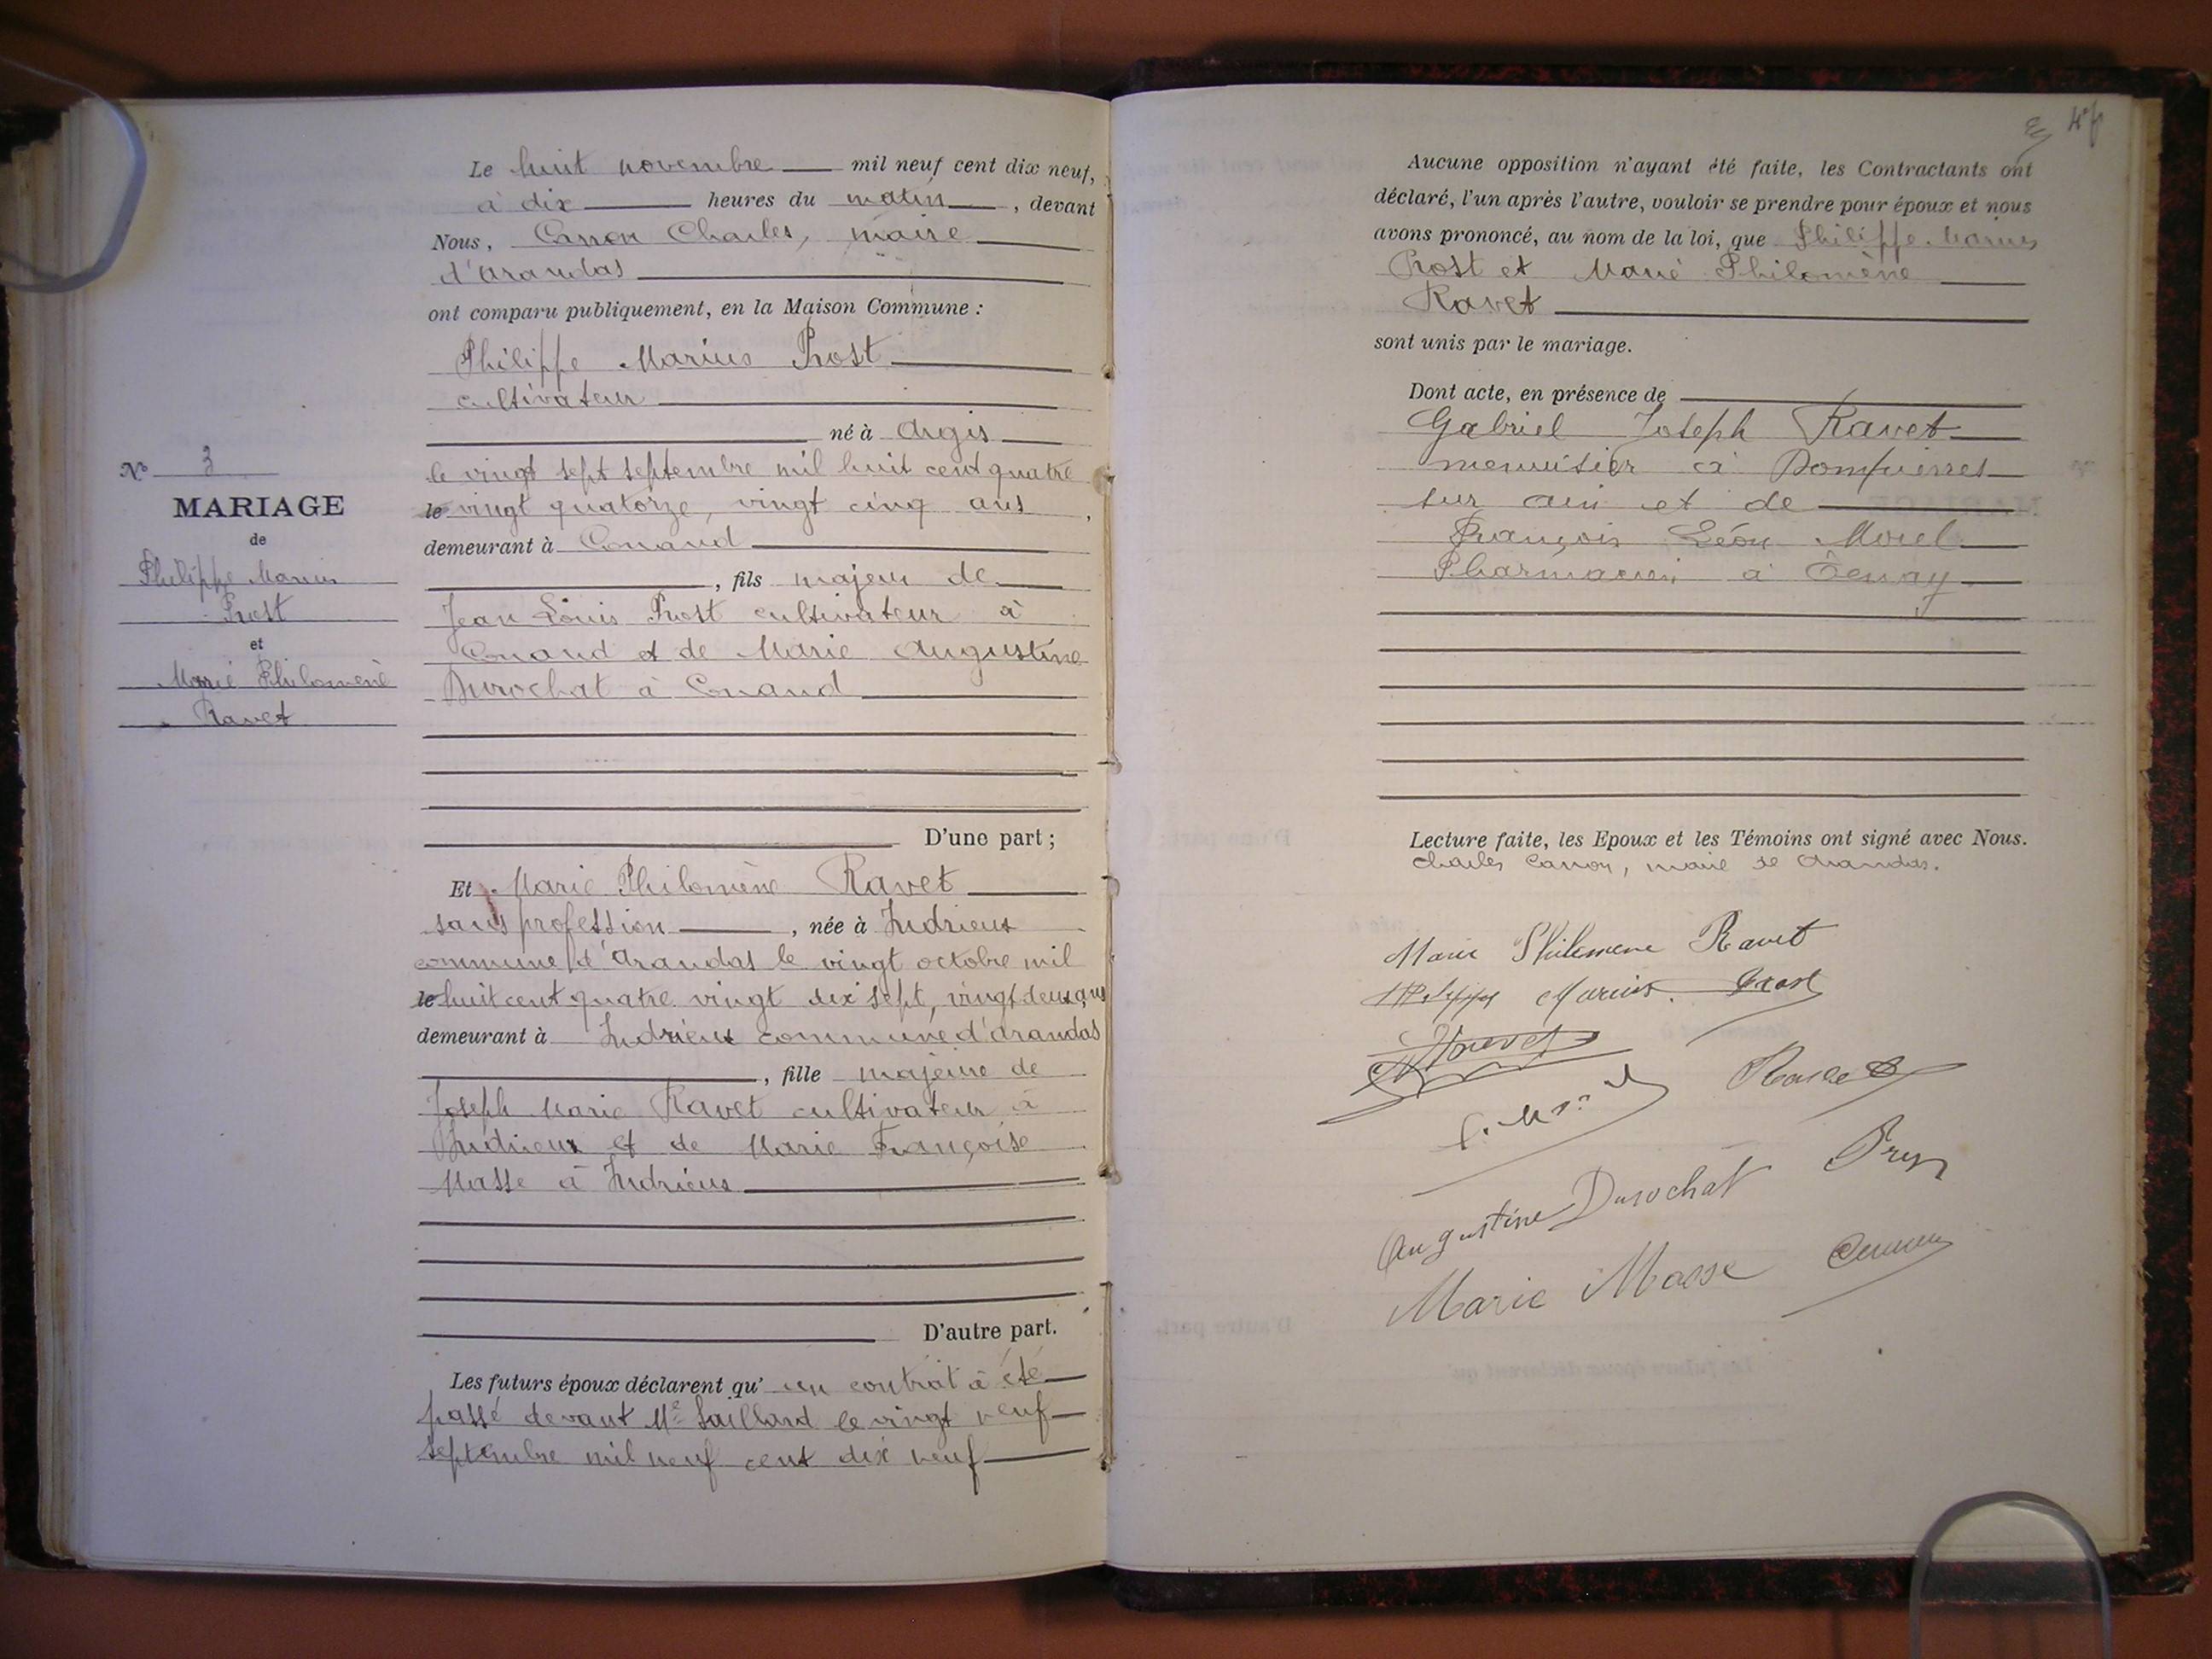 N° 3
MARIAGE
de
Philippe Marius
Prost
et
Marie Philomène
Ravet
Le huit novembre mil neuf cent dix neuf,
à dix heures du matin, devant
Nous, Carron Charles, maire
d'arandas
ont comparu publiquement, en la Maison Commune :
Philippe Marius Prost
cultivateur
né à Argis
le vingt sept septembre mil huit cent quatre
le vingt quatorze, vingt cinq ans,
demeurant à Conand
, fils majeur de
Jean Louis Prost cultivateur à
Conand et de Marie Augustine
Durochat à Conand
D'une part ;
Et Marie Philomène Ravet
sans profession, née à Indrieux
commune d'Arandas le vingt octobre mil
le huit cent quatre vingt dix sept, vingt deux ans
demeurant à Indrieux commune d'arandas
, fille majeure de
Joseph Marie Ravet cultivateur à
Indrieux et de Marie Françoise
Masse à Indrieux
D'autre part.
Les futurs époux déclarent qu' un contrat a été
passé devant Me Saillard le vingt neuf
septembre mil neuf cent dix neuf
Aucune opposition n'ayant été faite, les Contractants ont
déclaré, l'un après l'autre, vouloir se prendre pour époux et nous
avons prononcé, au nom de la loi, que Philippe Marius
Prost et Marie Philomène
Ravet
sont unis par le mariage.
Dont acte, en présence de
Gabriel Joseph Ravet
menuisier à Dompierres
sur ain et de
François Léon Morel
Pharmacien à Tenay
Lecture faite, les Epoux et les Témoins ont signé avec Nous.
Charles Carron, maire de Arandas.
Marie Philomene Ravet
Philippe Marius Prost
Ravet
Augustine Durochat
Marie Masse